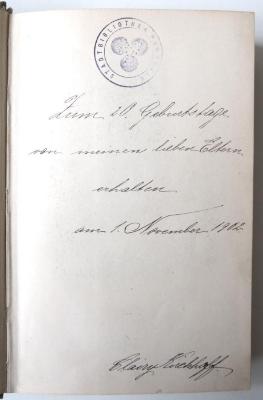 STADTBIBLIOTHEK
Zum 20. Geburtstage
von meinen lieben Eltern
erhalten
am 1. November 1902.
Kirchhoff